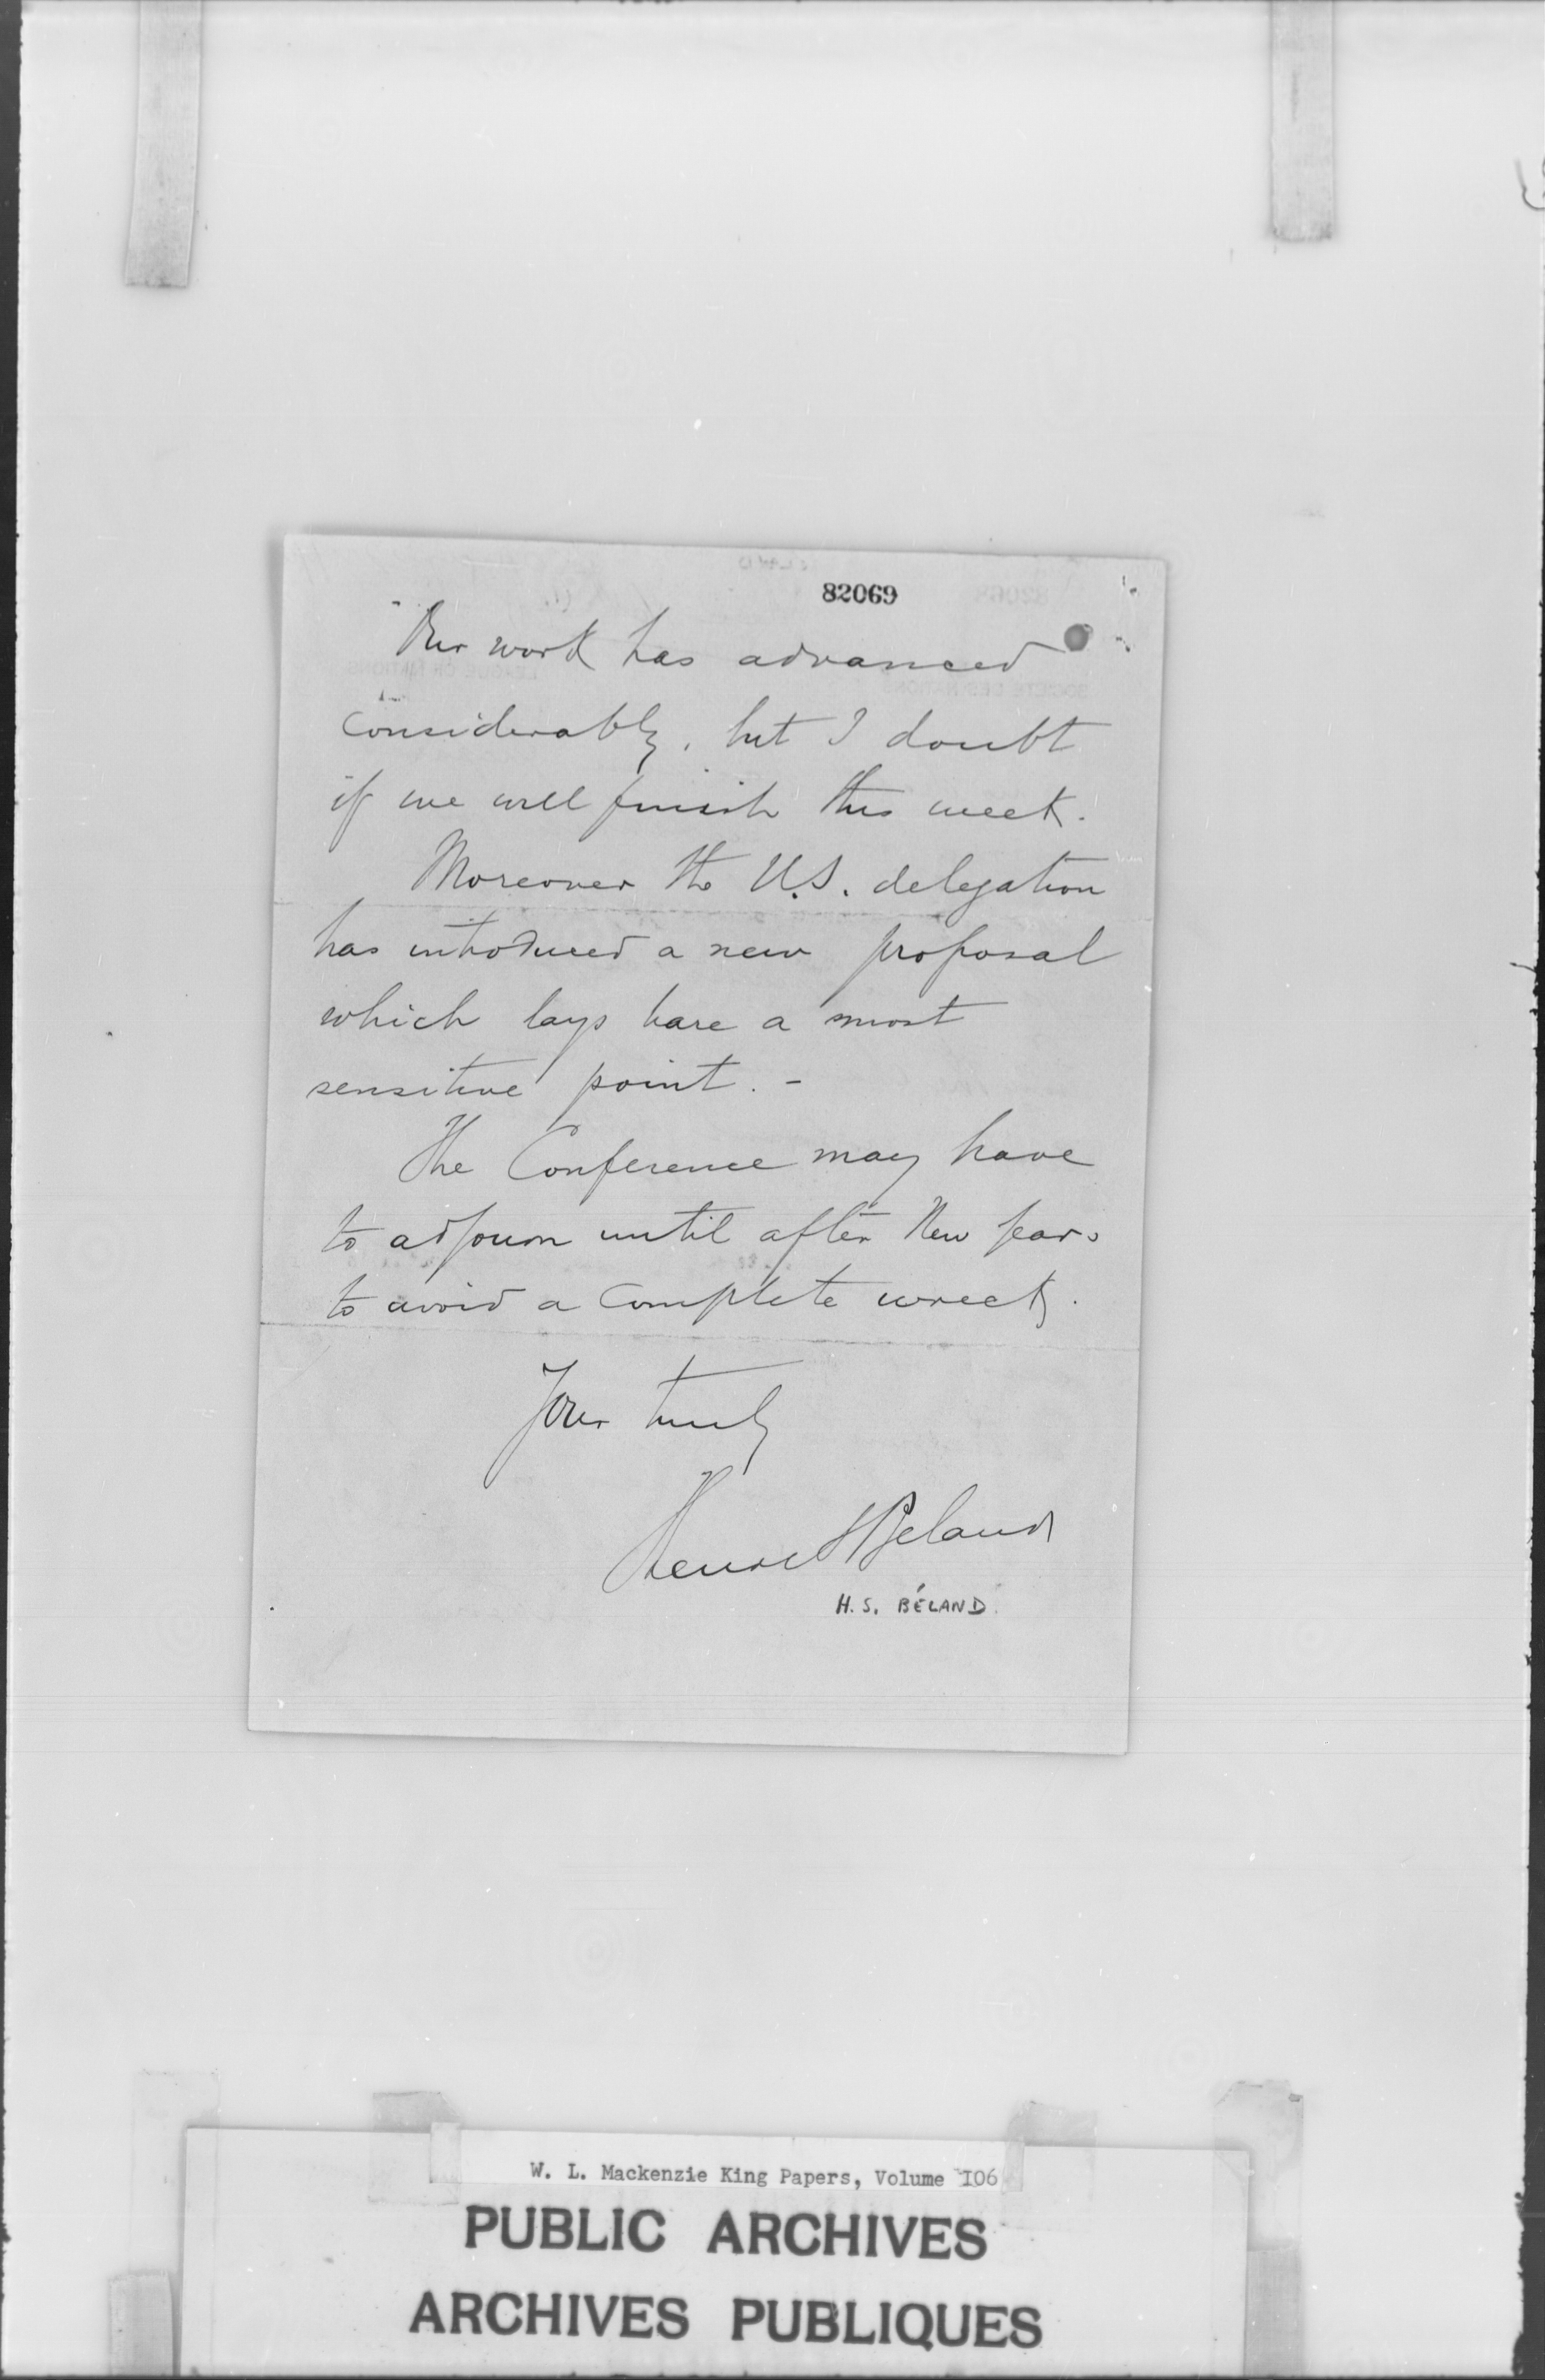 82069
Our work has advanced
considerably, but I doubt
if we will finish this week.
Moreover the U.S. delegation
has introduced a new proposal
which lays bare a most
sensitive point. -
The Conference may have
to adjourn until after New Year.
to avoid a complete wreck.
Your truly
Henri S Beland
H. S. BÉLAND
W. L. Mackenzie King Papers, Volume 106
PUBLIC ARCHIVES
ARCHIVES PUBLIQUES